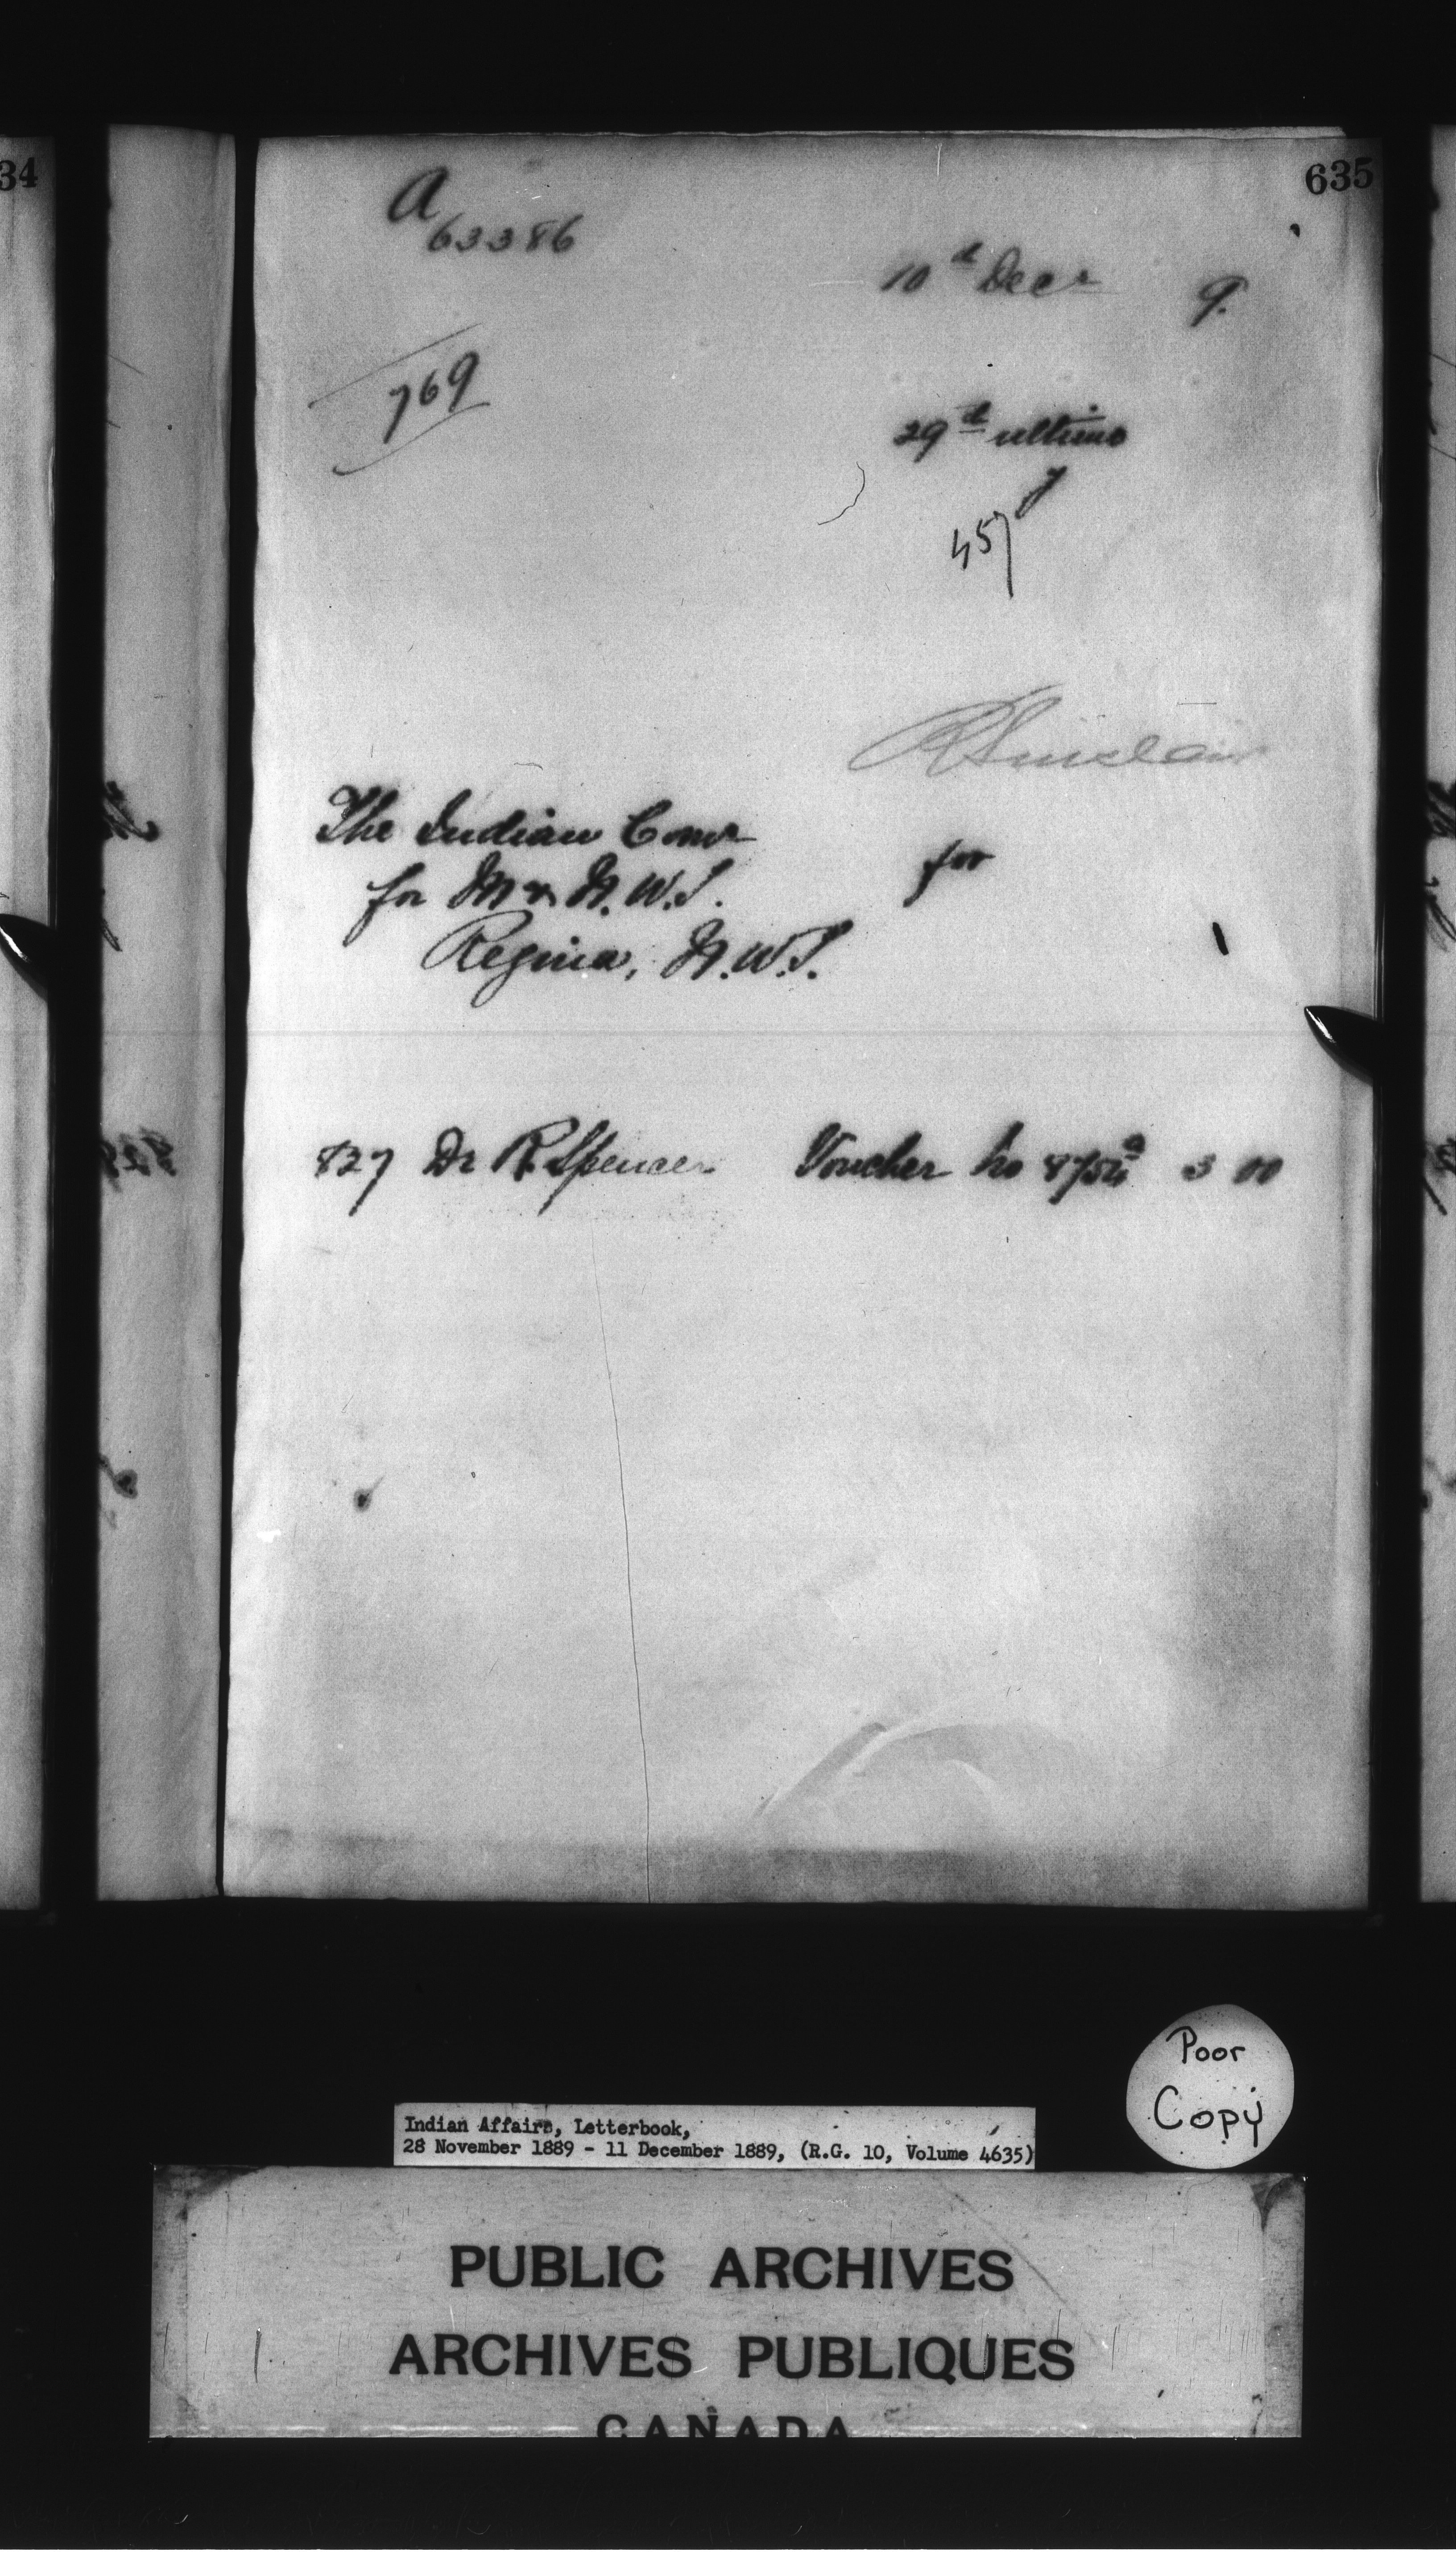 34
635
A
63386
10th Decr 9.
769
29th ultimo
y
457
R Sinclair
The Indian Comr
for M & N.W.T.
for
Regina, N.W.T.
827 Dr R. Spencer Voucher No 3 00
Poor
Copy
Indian Affairs, Letterbook,
28 November 1889 - 11 December 1889, (R.G. 10, Volume 4635)
PUBLIC ARCHIVES
ARCHIVES PUBLIQUES
CANADA